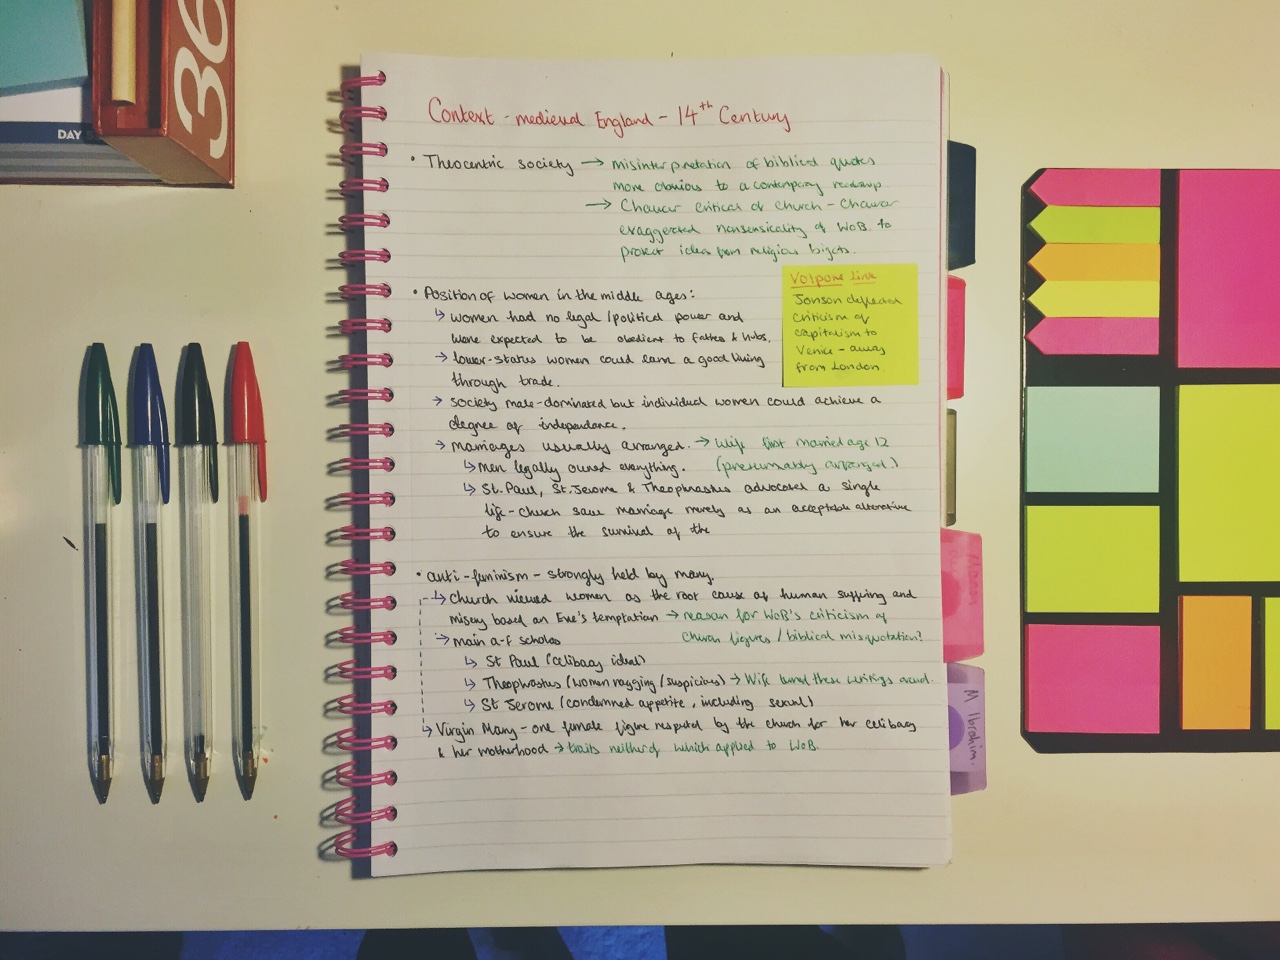 36
DAY
Context - medieval England - 14th Century
• Theocentric society → misinterpretation of biblical quotes
more obvious to a contemporary readership
→ Chaucer critical of church - Chaucer
exaggerated nonsensicality of WoB to
protect ideas from religious bigots.
• Position of women in the middle ages:
↳ women had no legal / political power and
were expected to be obedient to fathers & hubs.
→ lower-status women could earn a good living
through trade.
→ society male-dominated but individual women could achieve a
degree of independence.
→ Marriages usually arranged. → Wife first married age 12
↳ Men legally owned everything. (presumably arranged.)
↳ St. Paul, St. Jerome & Theophrastus advocated a single
life - church saw marriage merely as an acceptable alternative
to ensure the survival of the
Volpone link
Jonson deflected
criticism of
capitalism to
Venice - away
from London.
• anti-feminism - strongly held by many.
↳ Church viewed women as the root cause of human suffering and
misery based on Eve's temptation → reason for WoB's criticism of
→ main a-f scholars church figures / biblical misquotation?
↳ St Paul (celibacy ideal)
↳ Theophrastus (women nagging / suspicious) → Wife burned these writings aloud.
↳ St Jerome (condemned appetite, including sexual)
↳ Virgin Mary - one female figure respected by the church for her celibacy
& her motherhood → traits neither of which applied to WoB.
M Ibrahim.